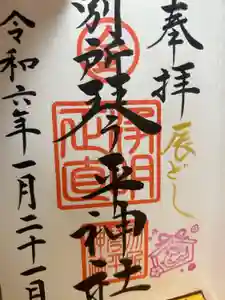 奉拝
辰どし
別所琴平神社
令和六年一月二十一日